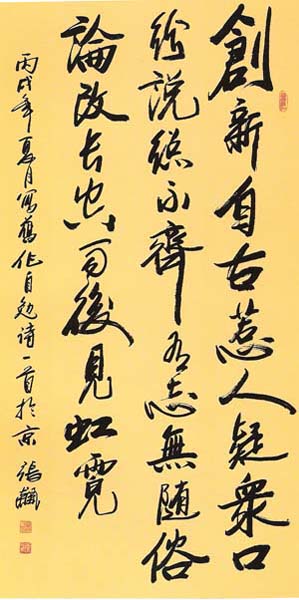 創新自古惹人疑衆口
紛説總不齊有志無隨俗
論改长空雨後見虹霓
丙戌年夏月寫舊作自勉诗一首於京 張飆